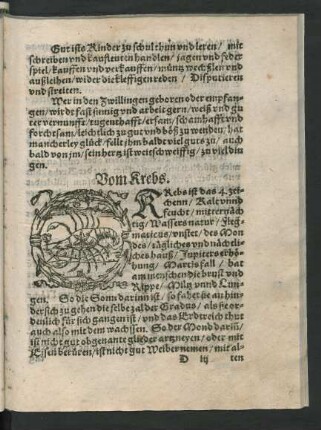 Gut ists Kinder zu schul thun vnd leren / mit
schreiben vnd kaufleuten handlen / jagen vnd feder
spiel / kauffen vnd verkauffen / müntz wechslen vnd
außleihen / wider die kleffigen reden / Disputieren
vnd streiten.
Wer in den Zwillingen geboren oder empfan-
gen / wirdt fast sinnig vnd arbeit gern / weiß vnd gu
ter vernunfft / tugenthafft / ersam / schamhafft vnd
forchtsam / leichtlich zu gut vnd böß zu wenden / hat
mancherley glück / fallt jhm baldt viel guts zu / auch
bald von jm / sein hertz ist weitschweiffig / zu viel din
gen.
Vom Krebs.
KRebs ist das 4. zei-
chenn / Kalt vnnd
feucht / mitternäch
tig / Wassers natur / fleg-
maticus / vnstet / des Mon
des / tägliches vnd nächtli-
ches hauß / Jupiters erhö-
hung / Martis fall / hat
am menschen die brust vnd
Rippe / Miltz vnnd Lun-
gen. So die Sonn darinn ist / so fahet sie an hin-
der sich zu gehen die selbe zal der Gradus / als sie or-
denlich für sich gangen ist / vnd das Erdtreich thut
auch also mit dem wachssen. So der Mond darin /
ist nicht gut obgenante glieder artzneyen / oder mit
Eissen berüren / ist nicht gut Weiber nemen / mit al-
D iij ten